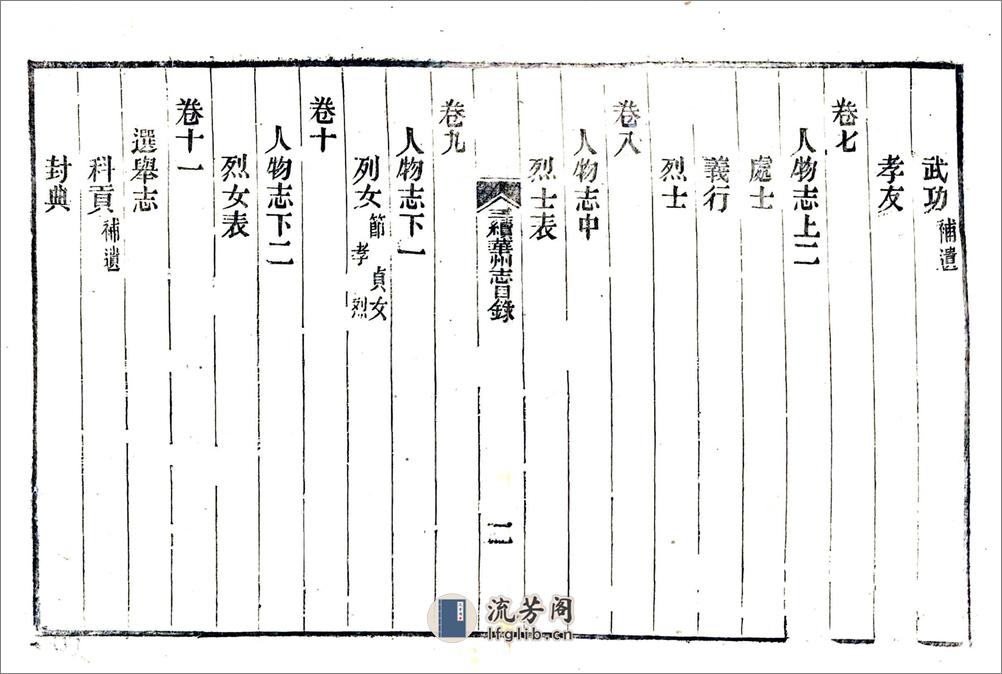 武功 補遺
孝友
卷七
人物志上二
處士
義行
烈士
卷八
人物志中
烈士表
三續華州志目錄
二
卷九
人物志下一
列女 節孝 貞女 烈
卷十
人物志下二
烈女表
卷十一
選舉志
科貢 補遺
封典
流芳阁
lfglib.cn